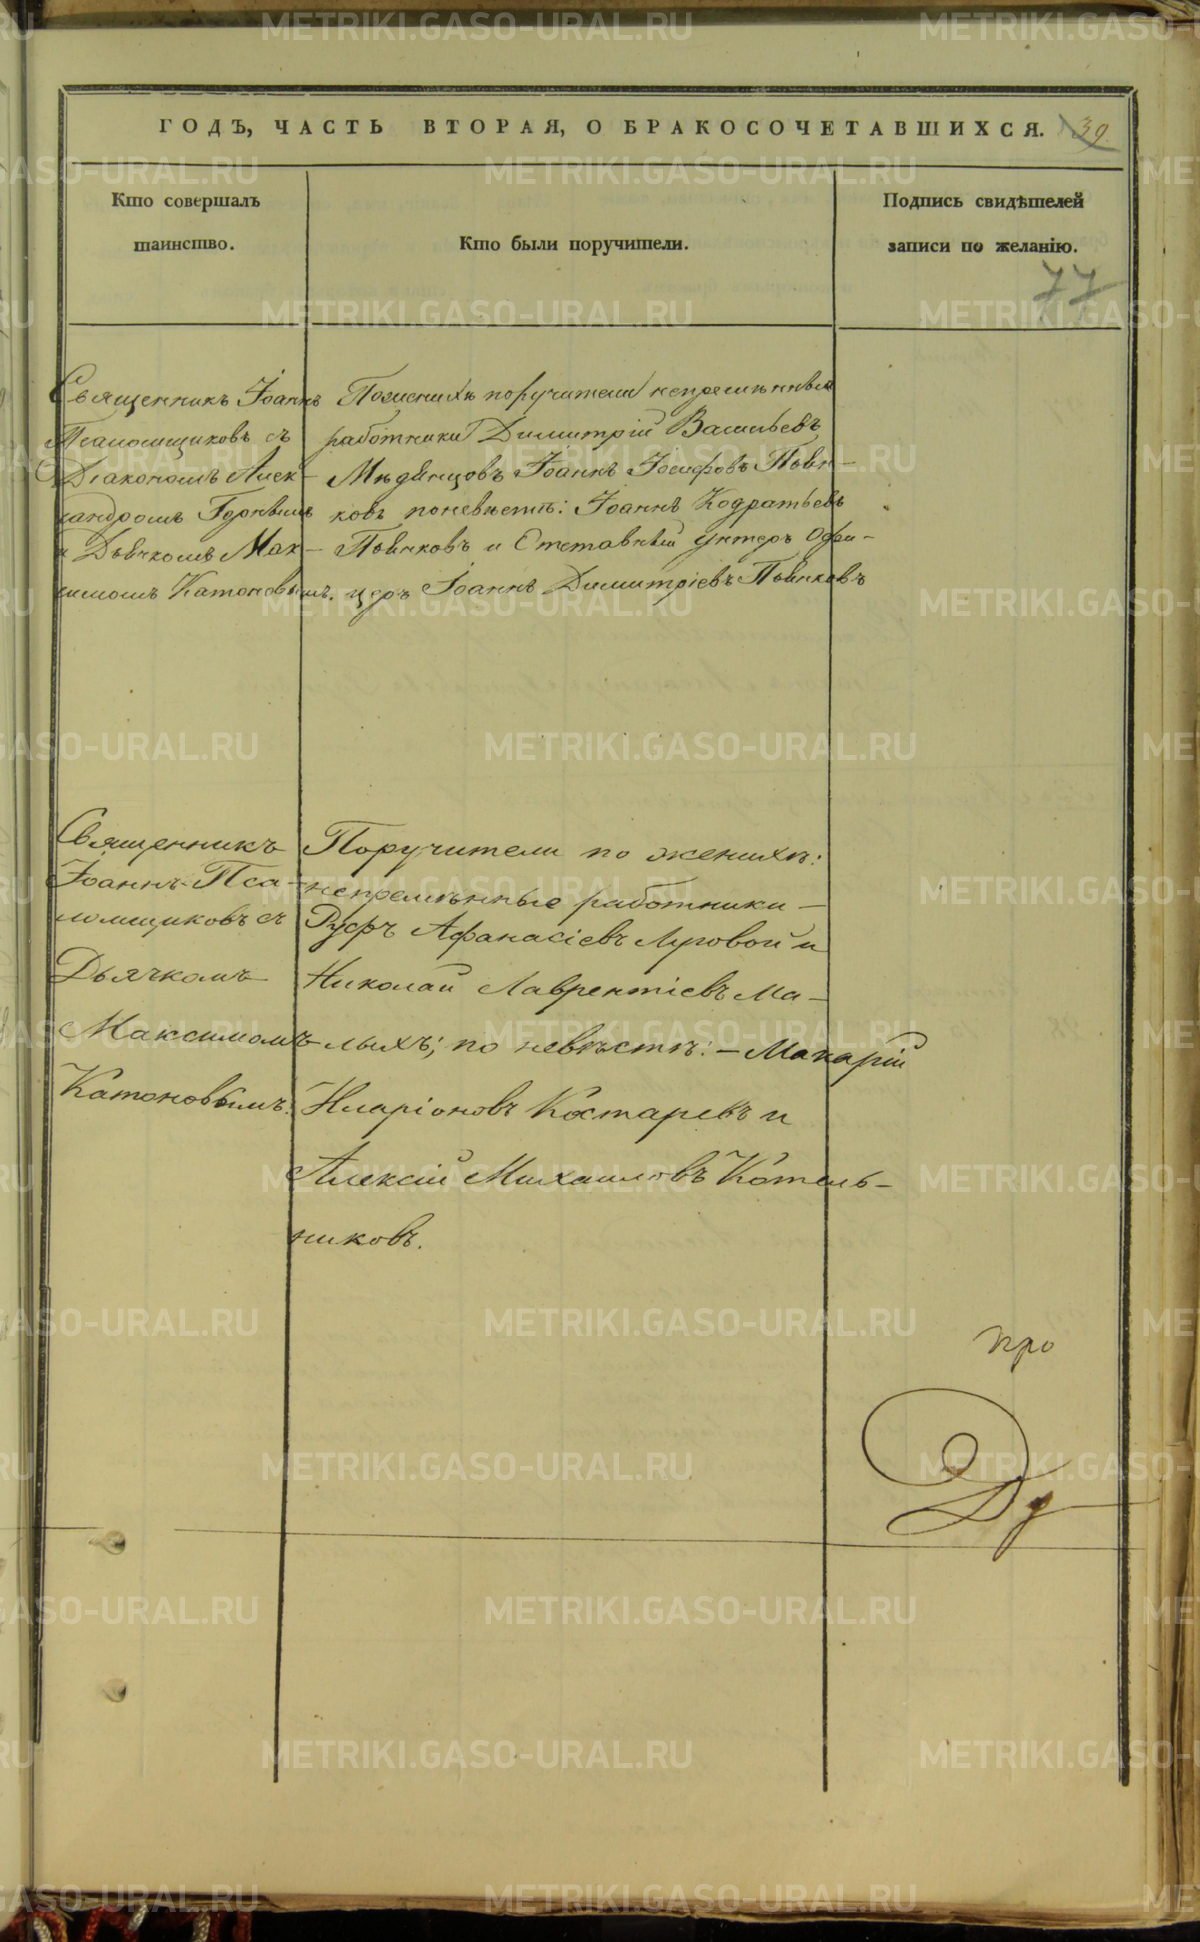 ГОДЪ, ЧАСТЬ ВТОРАЯ, О БРАКОСОЧЕТАВШИХСЯ. 39.
Кто совершалъ
таинство.
Кто были поручители.
Подпись свидѣтелей
записи по желанію.
77
Священникъ Іоаннъ
Псаломщиковъ съ
Діакономъ Алек-
сандромъ
и Дьячкомъ Мак-
симомъ Катоновымъ.
Поженихѣ поручители непремѣнныя
работники Димитрій Васильевъ
Мѣдянцовъ Іоаннъ Іосифовъ Пьян-
ковъ поневѣстѣ: Іоаннъ Кодратьевъ
Пьянковъ и Отставный Унтеръ Офи-
церъ Іоаннъ Димитріевъ Пьянковъ
Священникъ
Іоаннъ Пса-
ломщиковъ съ
Дьячкомъ
Максимомъ
Катоновымъ.
Поручители по женихѣ:
непремѣнные работники -
Руфъ Афанасіевъ Луговой и
Николай Лаврентіевъ Ма-
лыхъ; по невѣстѣ: - Макарій
Иларіоновъ Костаревъ и
Алексій Михаиловъ Котель-
никовъ.
про
METRIKI.GASO-URAL.RU